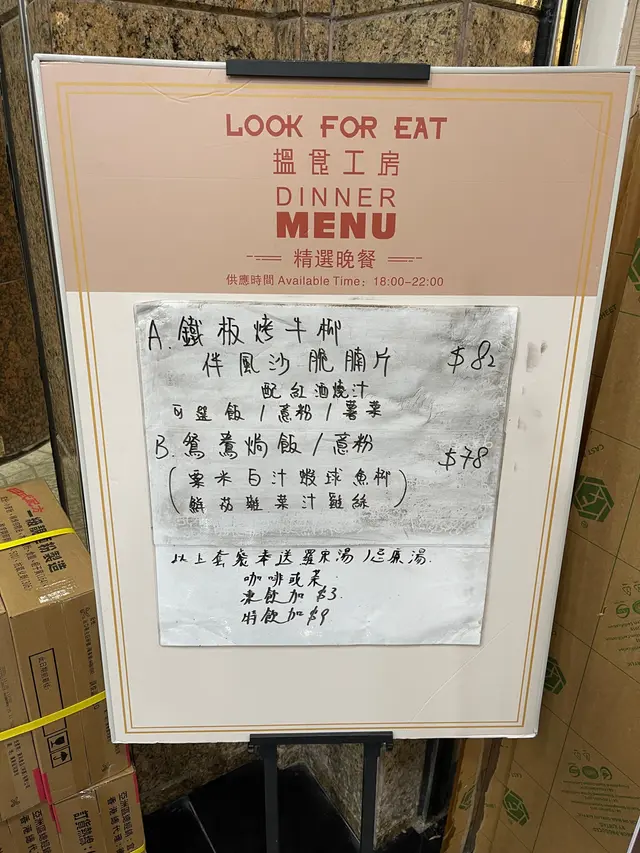 LOOK FOR EAT
搵食工房
DINNER
MENU
精選晚餐
供應時間 Available Time: 18:00-22:00
A. 鐵板烤牛柳
伴風沙脆腩片 $82
配紅酒燒汁
可選飯/意粉/薯菜
B. 鴛鴦焗飯/意粉 $78
(粟米白汁蝦球魚柳
鮮茄雜菜汁雞絲)
以上套餐奉送羅宋湯/忌廉湯.
咖啡或茶
凍飲加 $3.
特飲加 $9